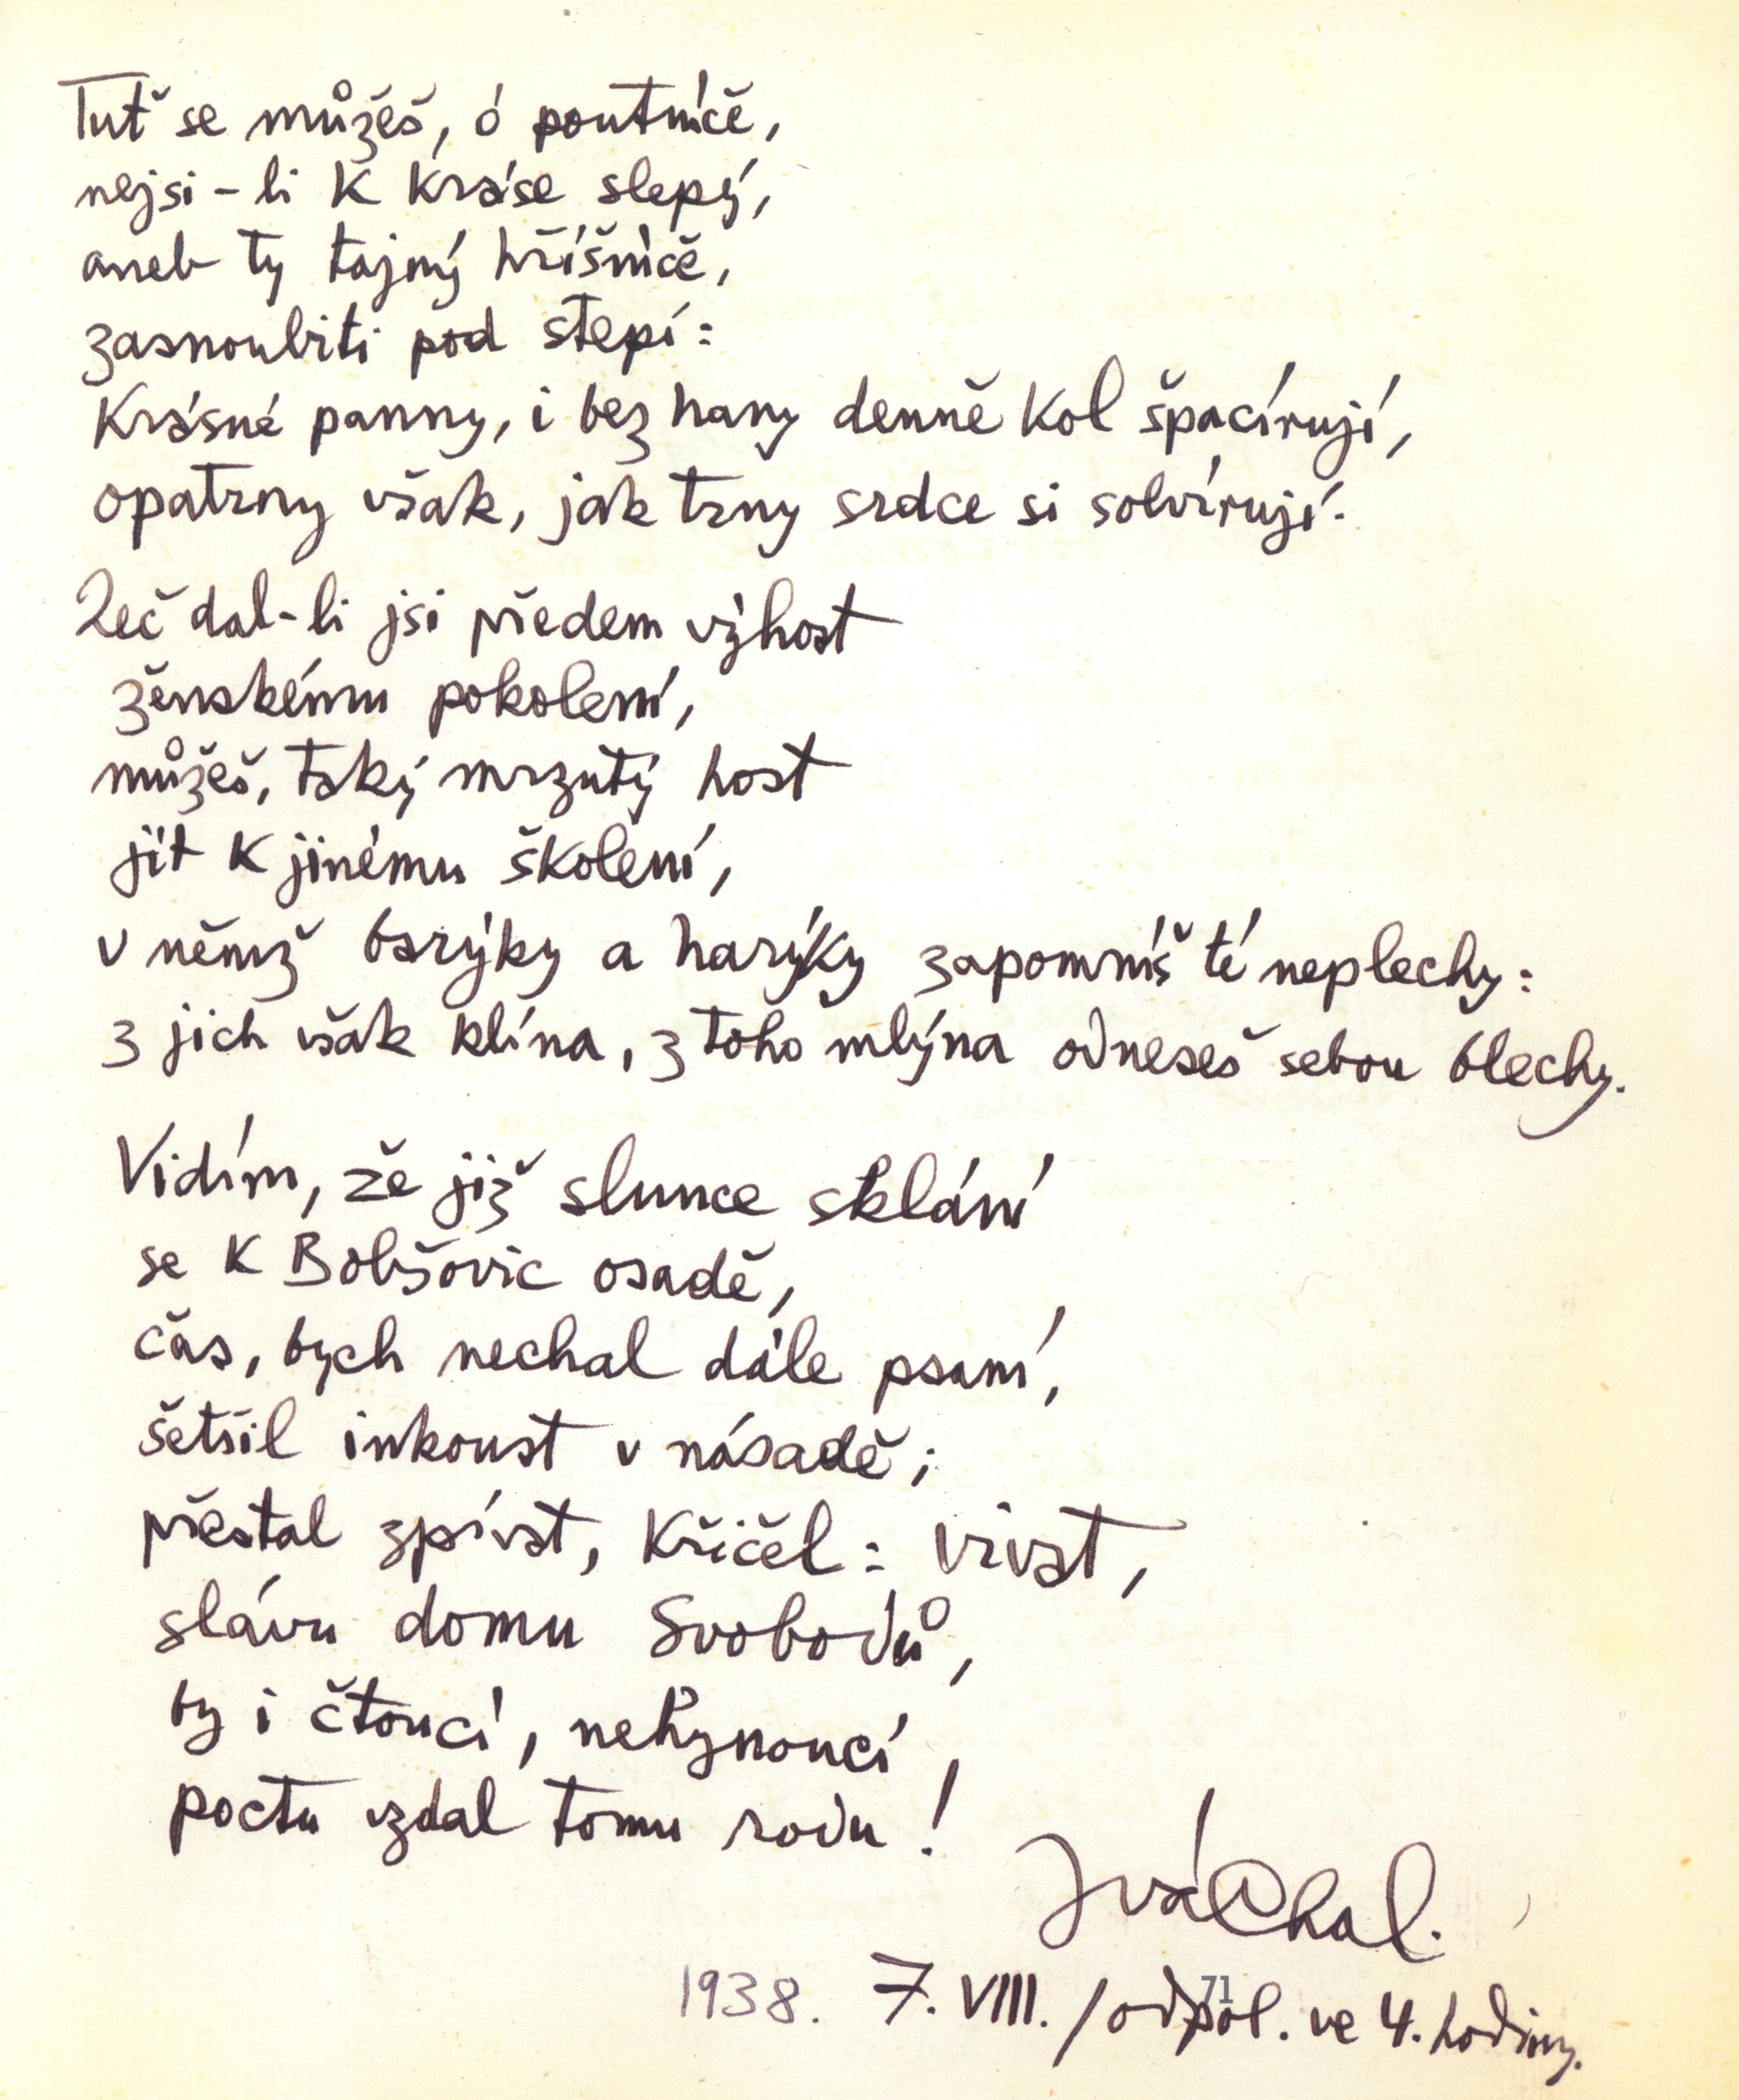 Tuť se můžeš, ó poutníče,
nejsi-li k kráse slepý,
aneb ty tajný hříšníče,
zasnoubiti pod stepí:
Krásné panny, i bez hany denně kol špacírují,
opatrny však, jak trny srdce si solvírují.
Leč dal-li jsi předem výhost
ženskému pokolení,
můžeš, taký mrzutý host
jít k jinému školení,
v němž Baryky a haryky zapomníš té neplechy:
z jich však klína, z toho mlýna odneseš sebou blechy.
Vidím, že již slunce sklání
se k Bobšovic osadě,
čas, bych nechal dále psaní,
šetřil inkoust v násadě;
přestal zpívat, křičel: vivat,
slávu domu Svobodů,
by i čtoucí, nehynoucí
poctu vzdal tomu rodu!
JváChal.
1938. 7. VIII. / odpol. ve 4. hodiny.
71